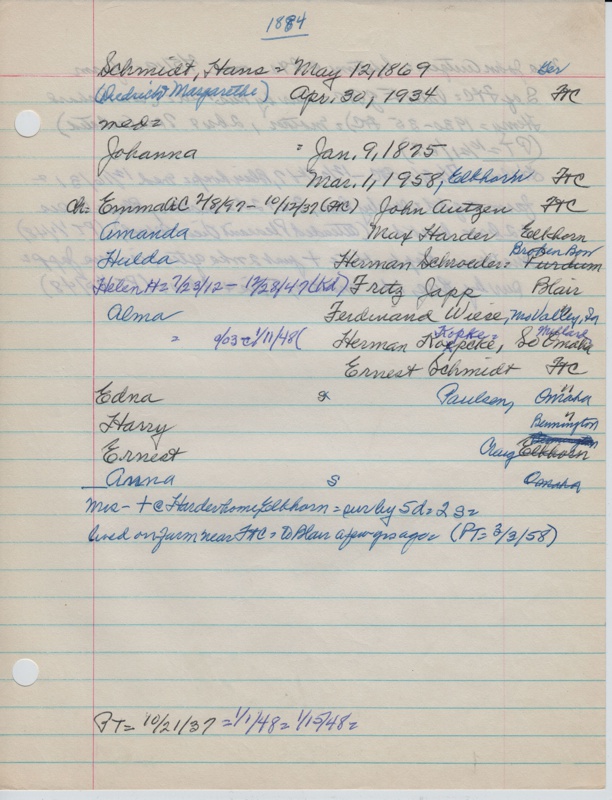 1884
Schmidt, Hans = May 12, 1869 Ger
(Diedrich & Margarethe) Apr. 30, 1934 FtC
med=
Johanna = Jan. 9, 1875
Mar. 1, 1958, Elkhorn FtC
Ch= Emma AC 2/8/97 - 10/12/37 (FtC) John Autzen FtC
Amanda Max Harder Elkhorn
Hulda Herman Schroeder = Broken Bow Purdum
Helen H = 7/23/12 - 12/28/47 (Kd) Fritz Japp Blair
Alma Ferdinand Wiese, Mo Valley, Ia
= 9/03 - 1/11/48 ( Herman Koepcke, Kopke = So Omaha Millard
Ernest Schmidt FtC
Edna Paulsen, Omaha
Harry Bennington
Ernest Craig Elkhorn
Anna S Omaha
Mrs - + @ Harder home, Elkhorn = sur by 5d = 2s =
lived on farm near FtC = to Blair a few yrs ago = (PT = 3/3/58)
PT = 10/21/37 = 1/1/48 = 1/15/48 =